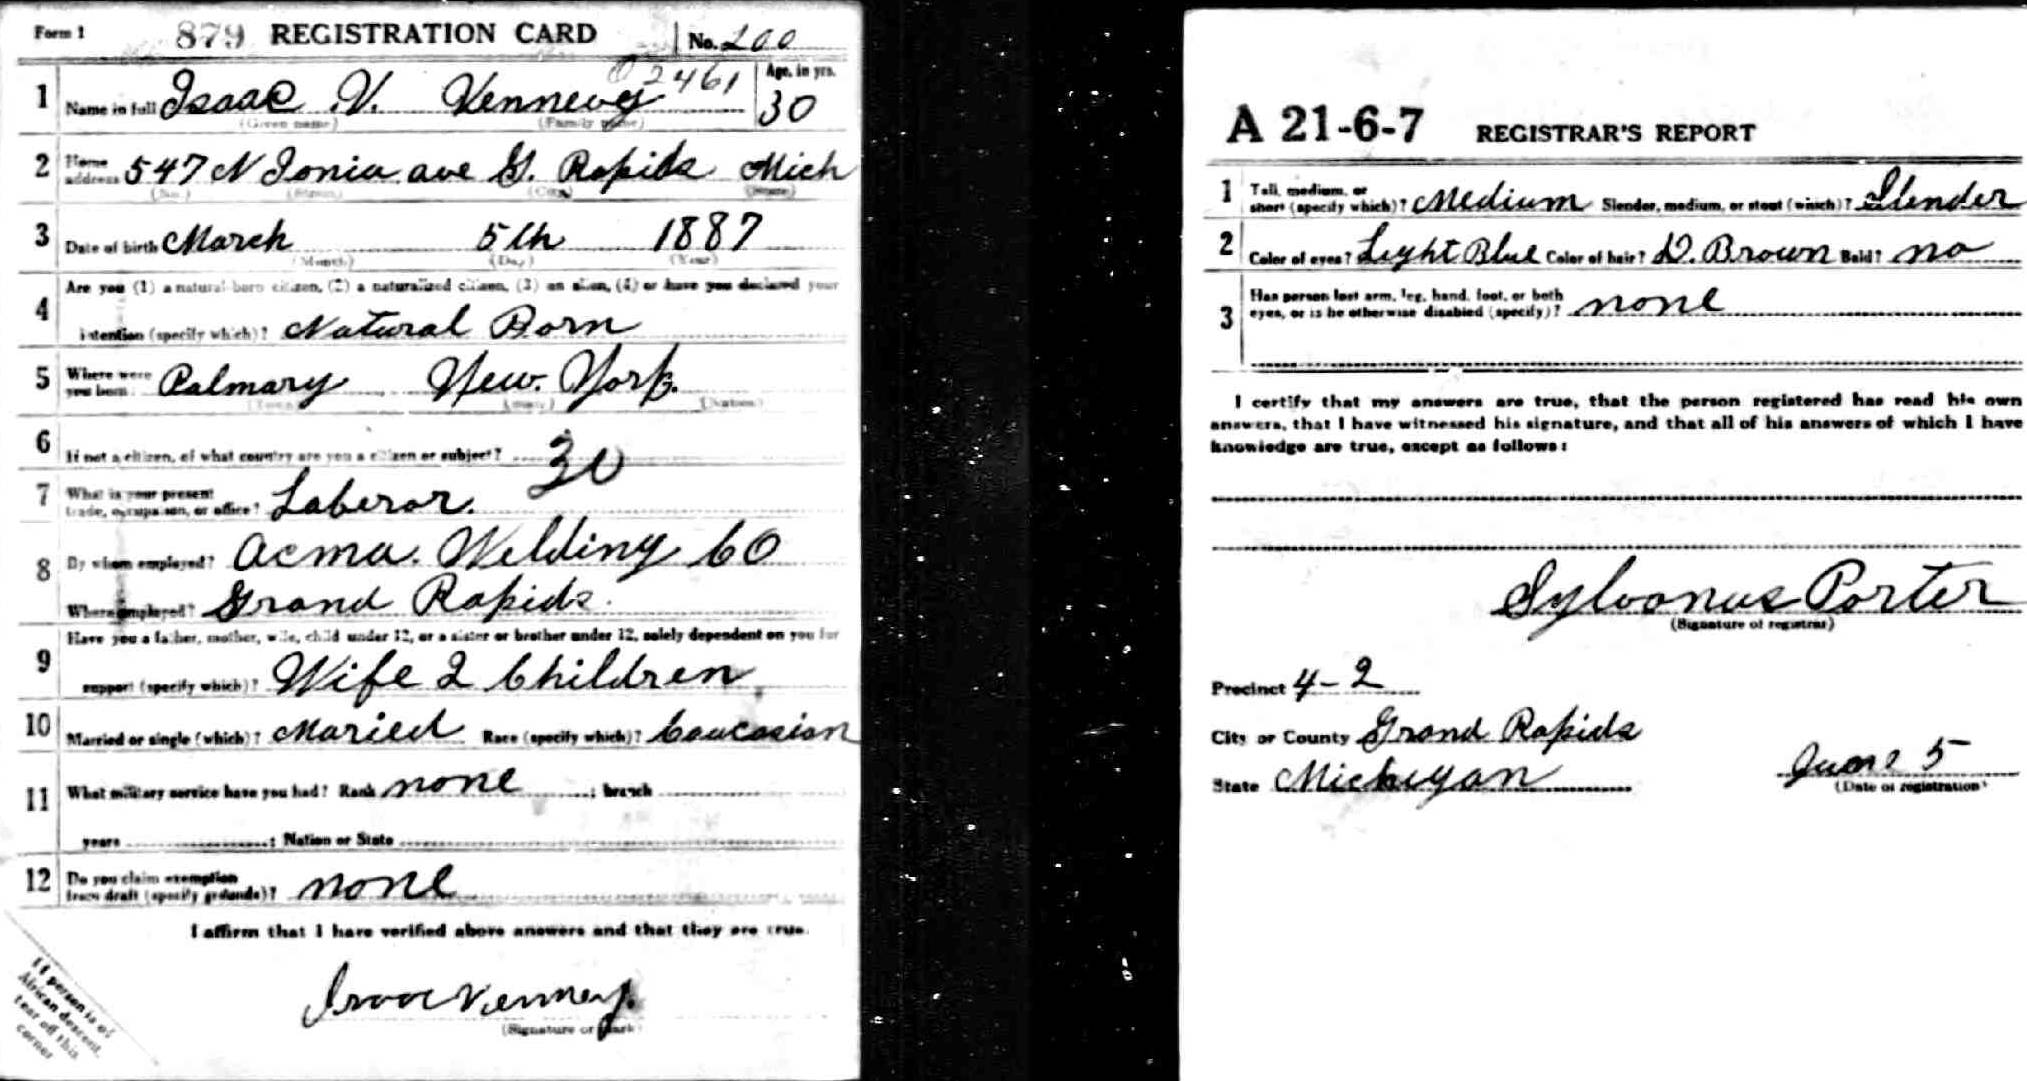 Form 1 879 REGISTRATION CARD No. 200
02461 Age, in yrs.
1 Name in full Isaac V. Vennevy 30
(Given name) (Family name)
2 Home address 547 N Ionia ave G. Rapids Mich
(No.) (Street) (City) (State)
3 Date of birth March 5th 1887
(Month) (Day) (Year)
4 Are you (1) a natural-born citizen, (2) a naturalized citizen, (3) an alien, (4) or have you declared your
intention (specify which)? Natural Born
5 Where were you born Palmary New. York.
(Town) (State) (Nation)
6 If not a citizen, of what country are you a citizen or subject?
30
7 What is your present
trade, occupation, or office? Laberor.
8 By whom employed? Acma. Welding Co
Where employed? Grand Rapids.
9 Have you a father, mother, wife, child under 12, or a sister or brother under 12, solely dependent on you for
support (specify which)? Wife 2 Children
10 Married or single (which)? Maried Race (specify which)? Caucasian
11 What military service have you had? Rank none ; branch
years ; Nation or State
12 Do you claim exemption
from draft (specify grounds)? none
I affirm that I have verified above answers and that they are true.
Isaac Venney.
(Signature or mark)
If person is of
African descent,
tear off this
corner
A 21-6-7 REGISTRAR'S REPORT
1 Tall, medium, or
short (specify which)? Medium Slender, medium, or stout (which)? Slender
2 Color of eyes? Light Blue Color of hair? D. Brown Bald? no
3 Has person lost arm, leg, hand, foot, or both
eyes, or is he otherwise disabled (specify)? none
I certify that my answers are true, that the person registered has read his own
answers, that I have witnessed his signature, and that all of his answers of which I have
knowledge are true, except as follows:
Sylvanus Porter
(Signature of registrar)
Precinct 4-2
City or County Grand Rapids
State Michigan June 5
(Date of registration)